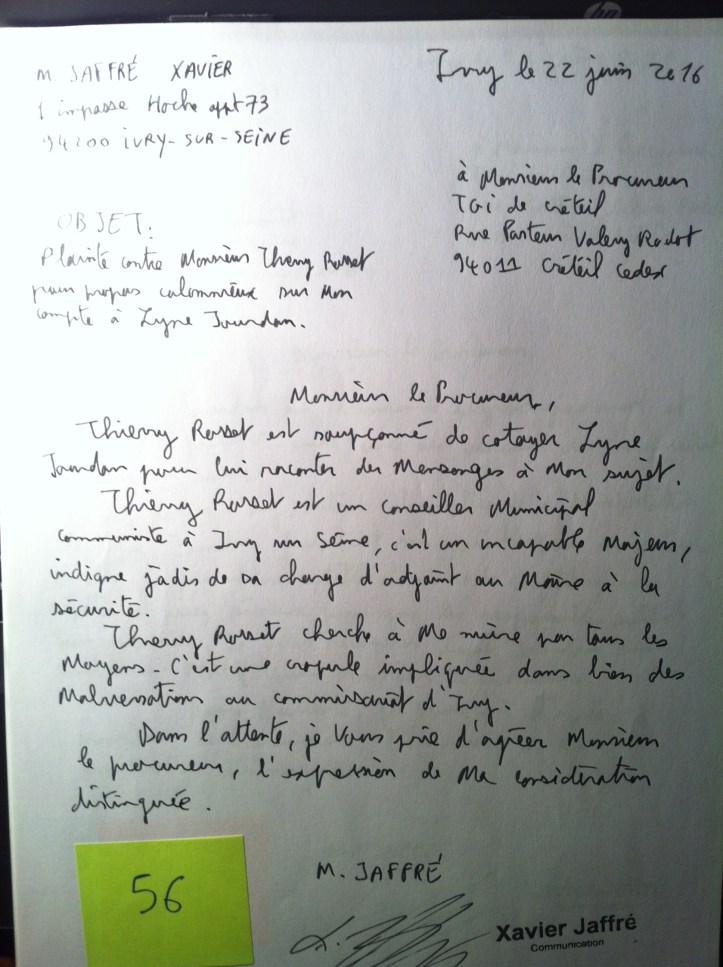 hp
M. JAFFRÉ XAVIER
1 impasse Hoche appt 73
94200 IVRY-SUR-SEINE
Ivry le 22 juin 2016
à Monsieur le Procureur
TGI de créteil
Rue Pasteur Valery Radot
94011 Créteil cedex
OBJET:
Plainte contre Monsieur Thierry Rosset
pour propos calomnieux sur Mon
compte à Lyne Jourdan.
Monsieur le Procureur,
Thierry Rosset est soupçonné de cotoyer Lyne
Jourdan pour lui raconter des Mensonges à Mon sujet.
Thierry Rosset est un conseiller Municipal
communiste à Ivry sur Seine, c'est un incapable Majeur,
indigne jadis de sa charge d'adjoint au Maire à la
sécurité.
Thierry Rosset cherche à Me nuire par tous les
Moyens. C'est une crapule impliquée dans bien des
Malversations au commissariat d'Ivry.
Dans l'attente, je Vous prie d'agréer Monsieur
le procureur, l'expression de Ma considération
distinguée.
56
M. JAFFRÉ
Xavier Jaffré
Communication